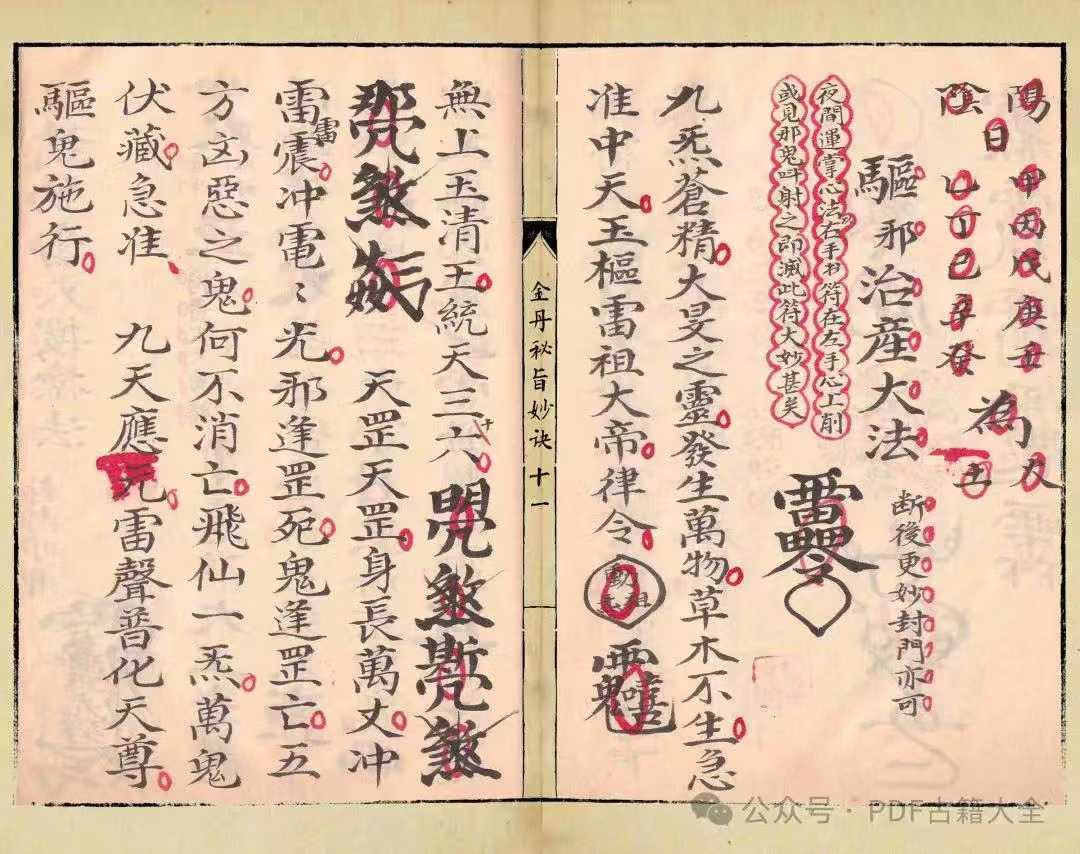 陽日甲丙戊庚壬為火
陰日乙丁己辛癸為土
驅邪治產大法
断後更妙封門亦可
夜間運掌心法右手书符在左手心上削
或見那鬼叫射之即滅此符大妙甚矣
九炁蒼精大旻之靈發生萬物草木不生急
准中天玉樞雷祖大帝律令
金丹祕旨妙诀十一
無上玉清王統天三十六
天罡天罡身長萬丈冲
雷震冲電〻光邪逢罡死鬼逢罡亡五
雷
方凶惡之鬼何不消亡飛仙一炁萬鬼
伏藏急准 九天應元雷聲普化天尊
驅鬼施行
公众号·PDF古籍大全